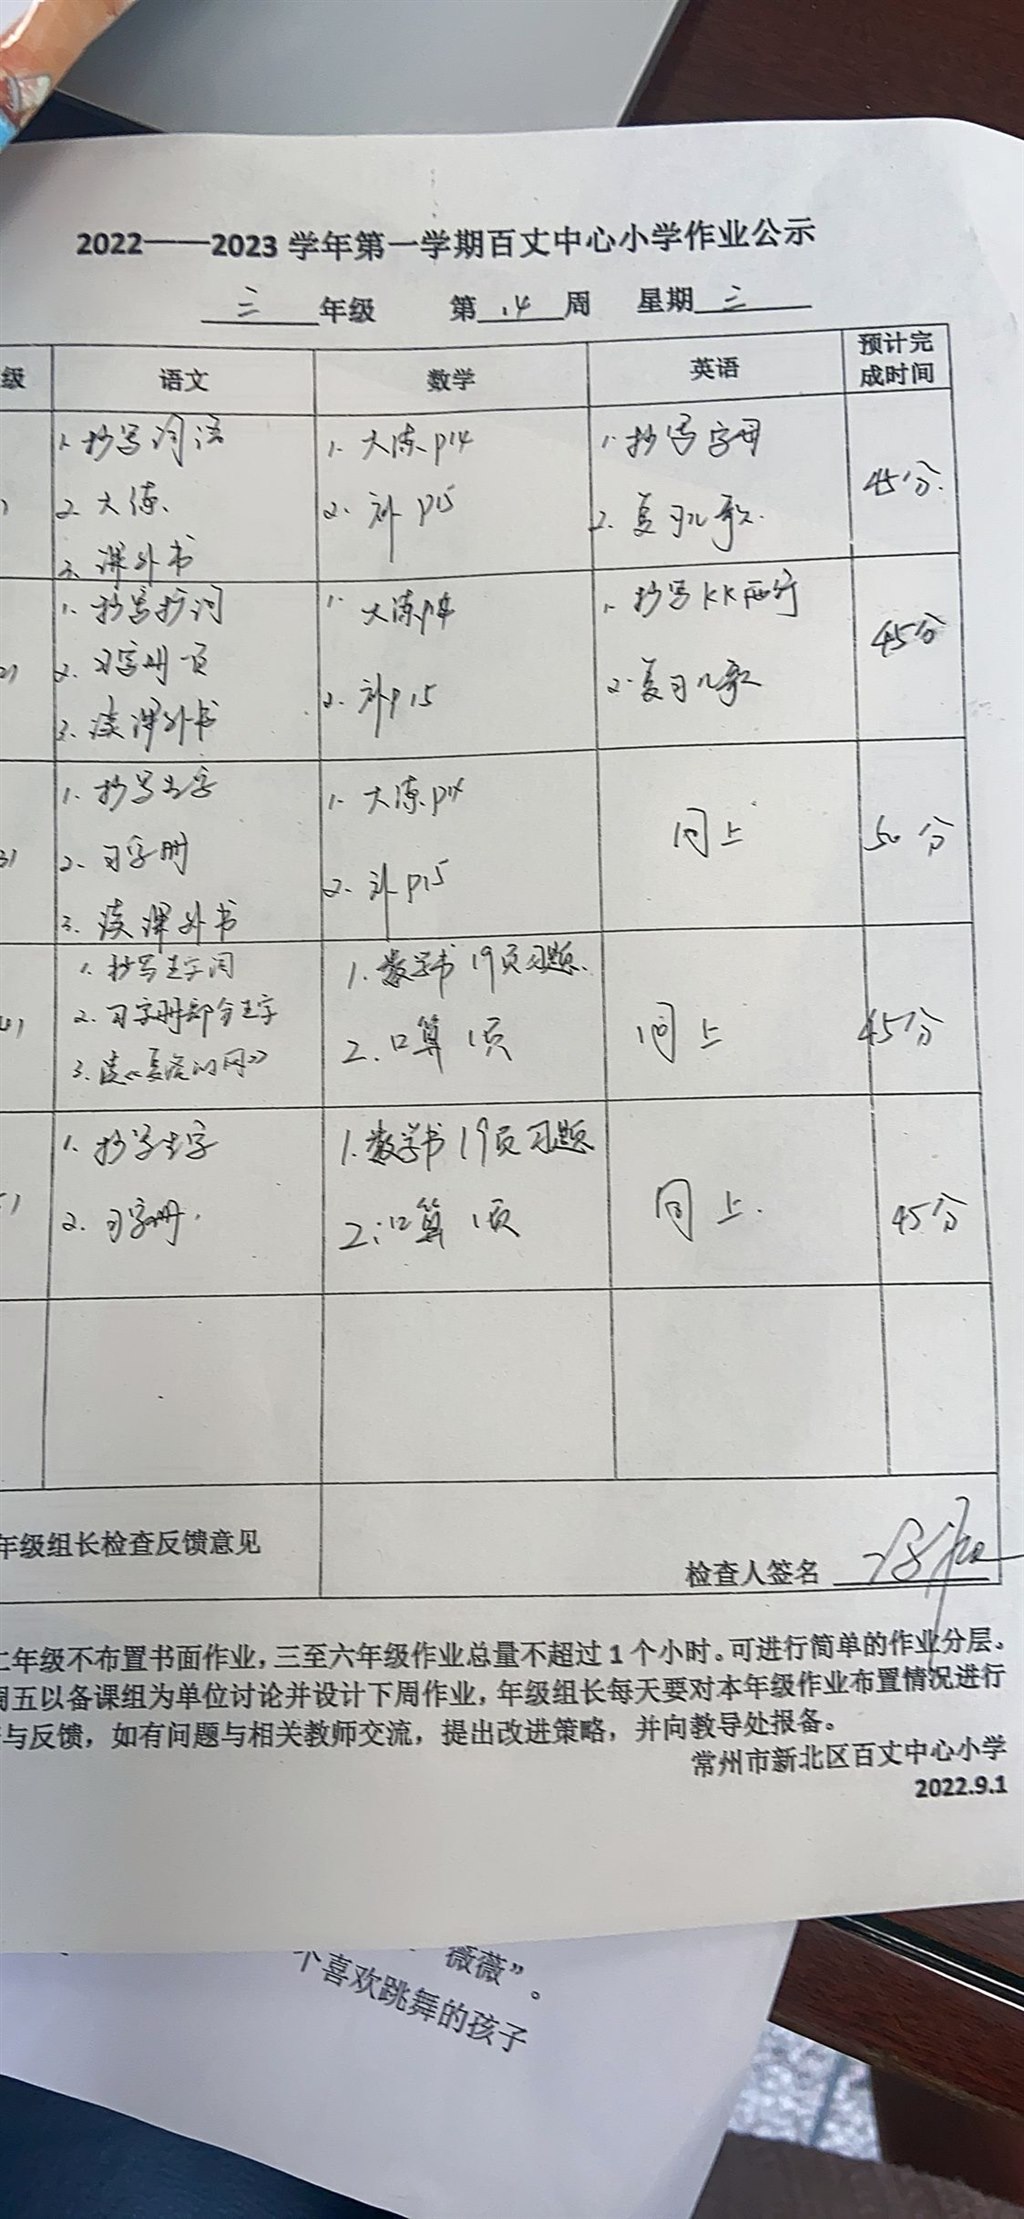 2022——2023 学年第一学期百丈中心小学作业公示
三 年级 第 14 周 星期 三
级 语文 数学 英语 预计完
成时间
1. 抄写词语
2. 大练.
3. 课外书
1. 大练 P14
2. 补 P15
1. 抄写字母
2. 复习儿歌.
45分.
2)
1. 抄写抄词
2. 习字册一页
3. 读课外书
1. 大练P14
2. 补P15
1. 抄写KK两行
2. 复习儿歌
45分
3)
1. 抄写生字
2. 习字册
3. 读课外书
1. 大练P14
2. 补P15
同上
50分
4)
1. 抄写生字词
2. 习字册部分生字
3. 读《夏洛的网》
1. 数学书19页习题.
2. 口算1页
同上
45分
1. 抄写生字
2. 习字册.
1. 数学书19页习题
2. 口算1页
同上.
45分
年级组长检查反馈意见
检查人签名
二年级不布置书面作业，三至六年级作业总量不超过 1 个小时。可进行简单的作业分层。
周五以备课组为单位讨论并设计下周作业，年级组长每天要对本年级作业布置情况进行
与反馈，如有问题与相关教师交流，提出改进策略，并向教导处报备。
常州市新北区百丈中心小学
2022.9.1
薇薇”。
个喜欢跳舞的孩子